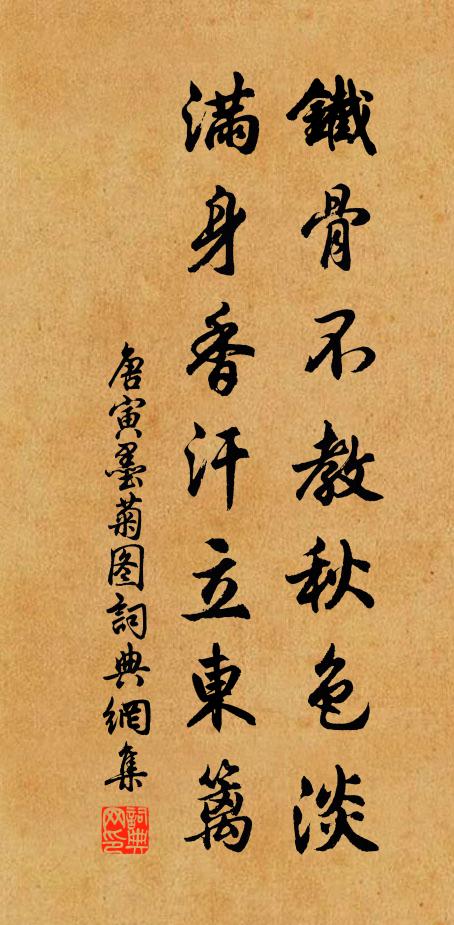 鐵骨不教秋色淡
滿身香汗立東籬
唐寅墨菊图詞典網集
詞典网印